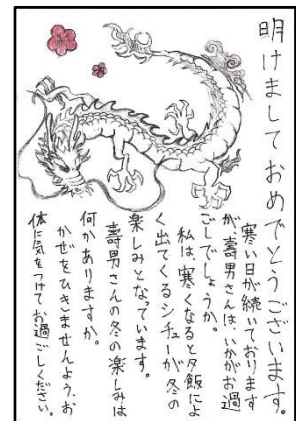 明けましておめでとうございます。
寒い日が続いております
が、壽男さんは、いかがお過
ごしでしょうか。
私は、寒くなると夕飯によ
く出てくるシチューが冬の
楽しみとなっています。
壽男さんの冬の楽しみは
何かありますか。
かぜをひきませんよう、お
体に気をつけてお過ごしください。